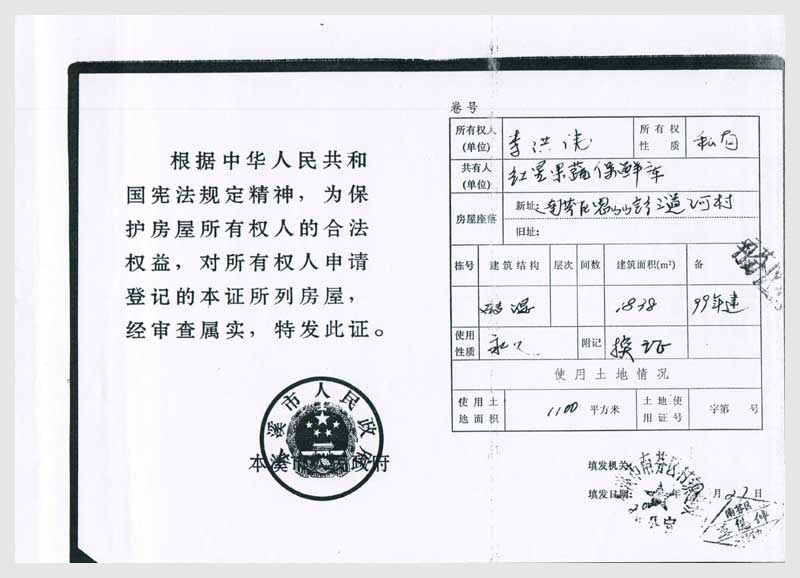 根据中华人民共和
国宪法规定精神，为保
护房屋所有权人的合法
权益，对所有权人申请
登记的本证所列房屋，
经审查属实，特发此证。
本溪市人民政府
本溪市人民政府
卷号
所有权人(单位) 李洪 所有权性质 私有
共有人(单位) 红星果蔬保鲜库
房屋座落 新址: 南芬区思山岭 道河村
旧址:
栋号 建筑结构 层次 间数 建筑面积(m²) 备
混 1838 99年建
使用性质 附记 换证
使用土地情况
使用土地面积 1100 平方米 土地使用证号 字第 号
填发机关:
填发日期: 年 月22日
南芬区
南芬区